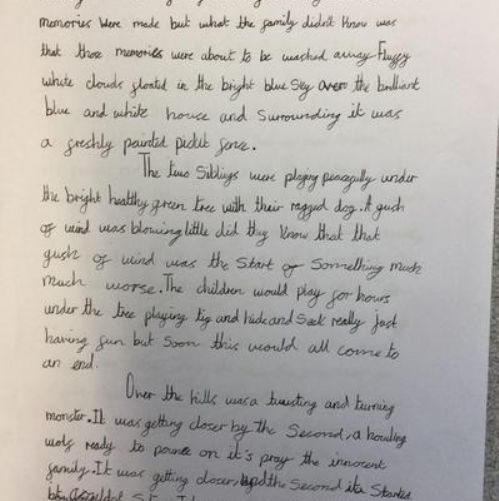 memories were made but what the family didn't know was
that those memories were about to be washed away. Fluffy
white clouds floated in the bright blue sky over the brilliant
blue and white house and Surrounding it was
a freshly painted picket fence.
The two Siblings were playing peacefully under
the bright healthy green tree with their ragged dog. A gush
of wind was blowing little did they know that that
gush of wind was the Start of Something much
much worse. The children would play for hours
under the tree playing tig and hide and Seek really just
having fun but Soon this would all come to
an end.
Over the hills was a twisting and turning
monster. It was getting closer by the Second, a howling
wolf ready to pounce on it's pray the innocent
family. It was getting closer, the Second